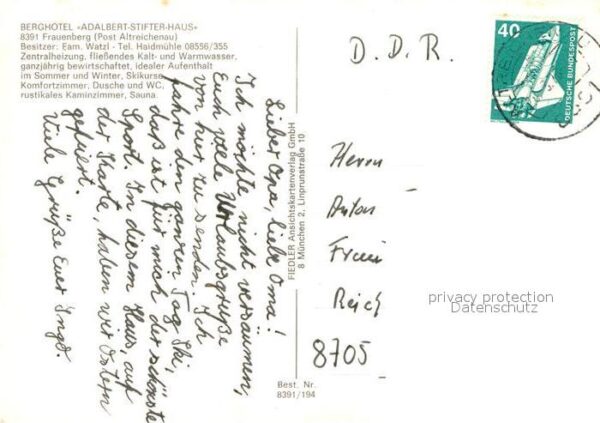 BERGHOTEL »ADALBERT-STIFTER-HAUS«
8391 Frauenberg (Post Altreichenau)
Besitzer: Fam. Watzl - Tel. Haidmühle 08556/355
Zentralheizung, fließendes Kalt- und Warmwasser,
ganzjährig bewirtschaftet, idealer Aufenthalt
im Sommer und Winter, Skikurse
Komfortzimmer, Dusche und WC,
rustikales Kaminzimmer, Sauna.
Lieber Opa, liebe Oma!
Ich möchte nicht versäumen,
Euch viele Urlaubsgrüße
von hier zu senden. Ich
fahre den ganzen Tag Ski,
daß ist für mich der schönste
Sport. In diesem Haus, auf
der Karte, haben wir Ostern
gefeiert.
Viele Grüße Euer Ingo.
FIEDLER Ansichtskartenverlag GmbH
8 München 2, Linprunstraße 10
Best. Nr.
8391/194
D. D. R.
40
DEUTSCHE BUNDESPOST
Herrn
Anton
Reich
8705
privacy protection
Datenschutz